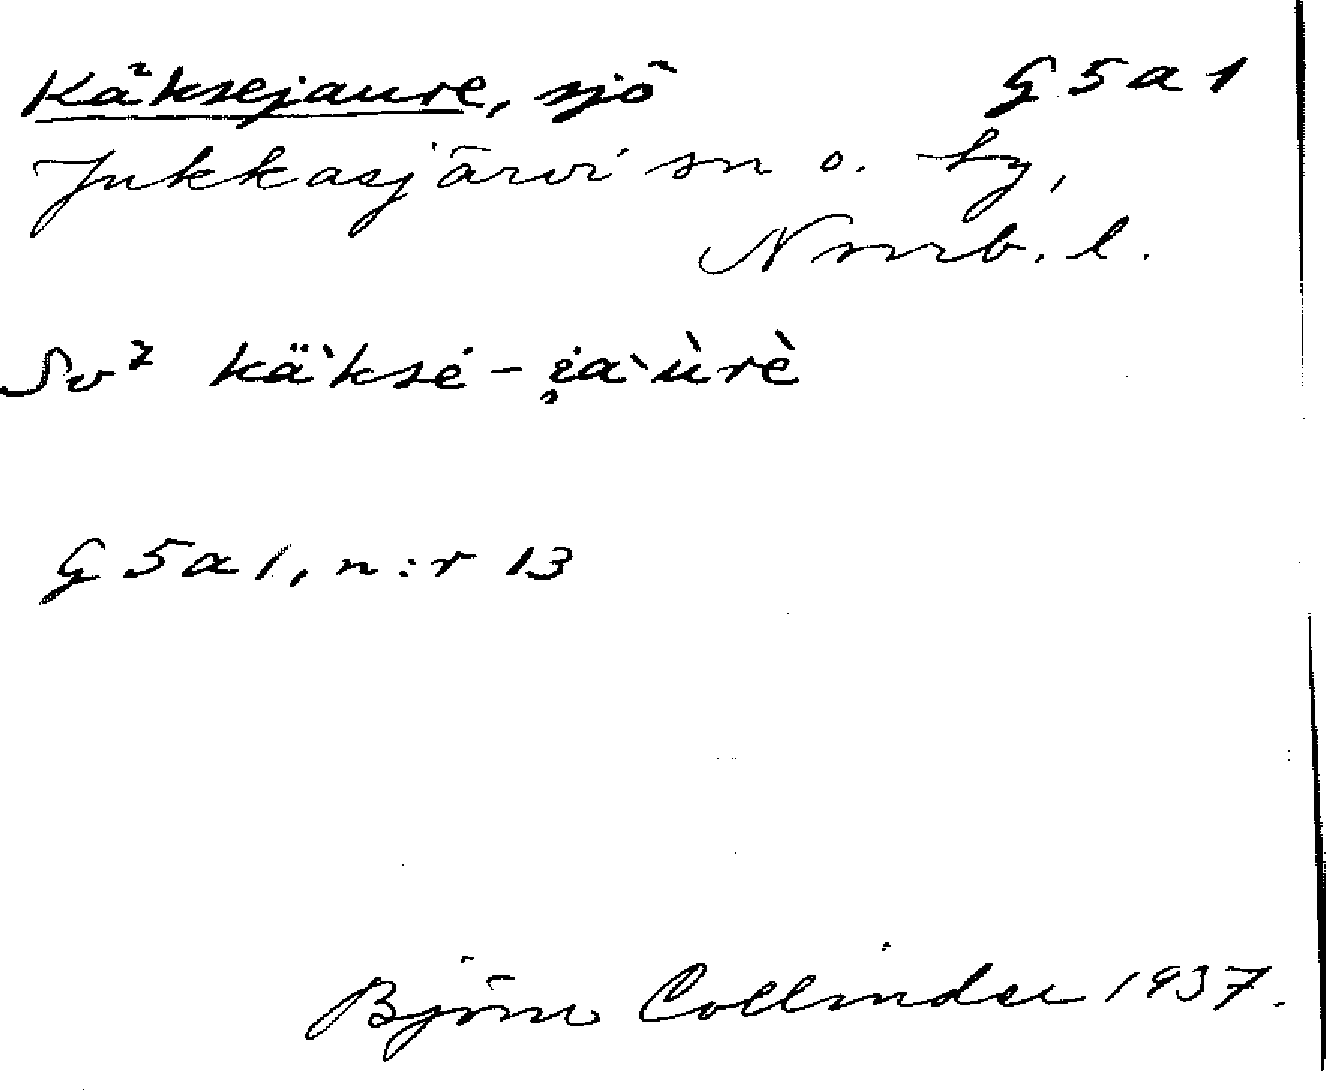 Käksejaure, sjö G5a1
Jukkasjärvi sn o. hg,
Nrrb. l.
Sv² kä̀ksé-i̯a̯ùrè
G5a1, n:r 13
Björn Collinder 1937.